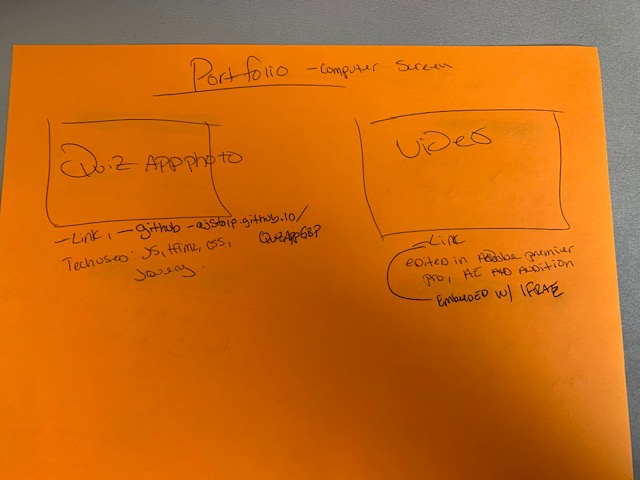 Portfolio - computer screen
Quiz App photo
Video
- Link, - github - ajstolp.github.io/
QuizAppGBP
Tech used: JS, HTML, CSS,
Jquery.
- Link
edited in Adobe premier
pro, AE AND AUDITION
- Embedded w/ IFRAE